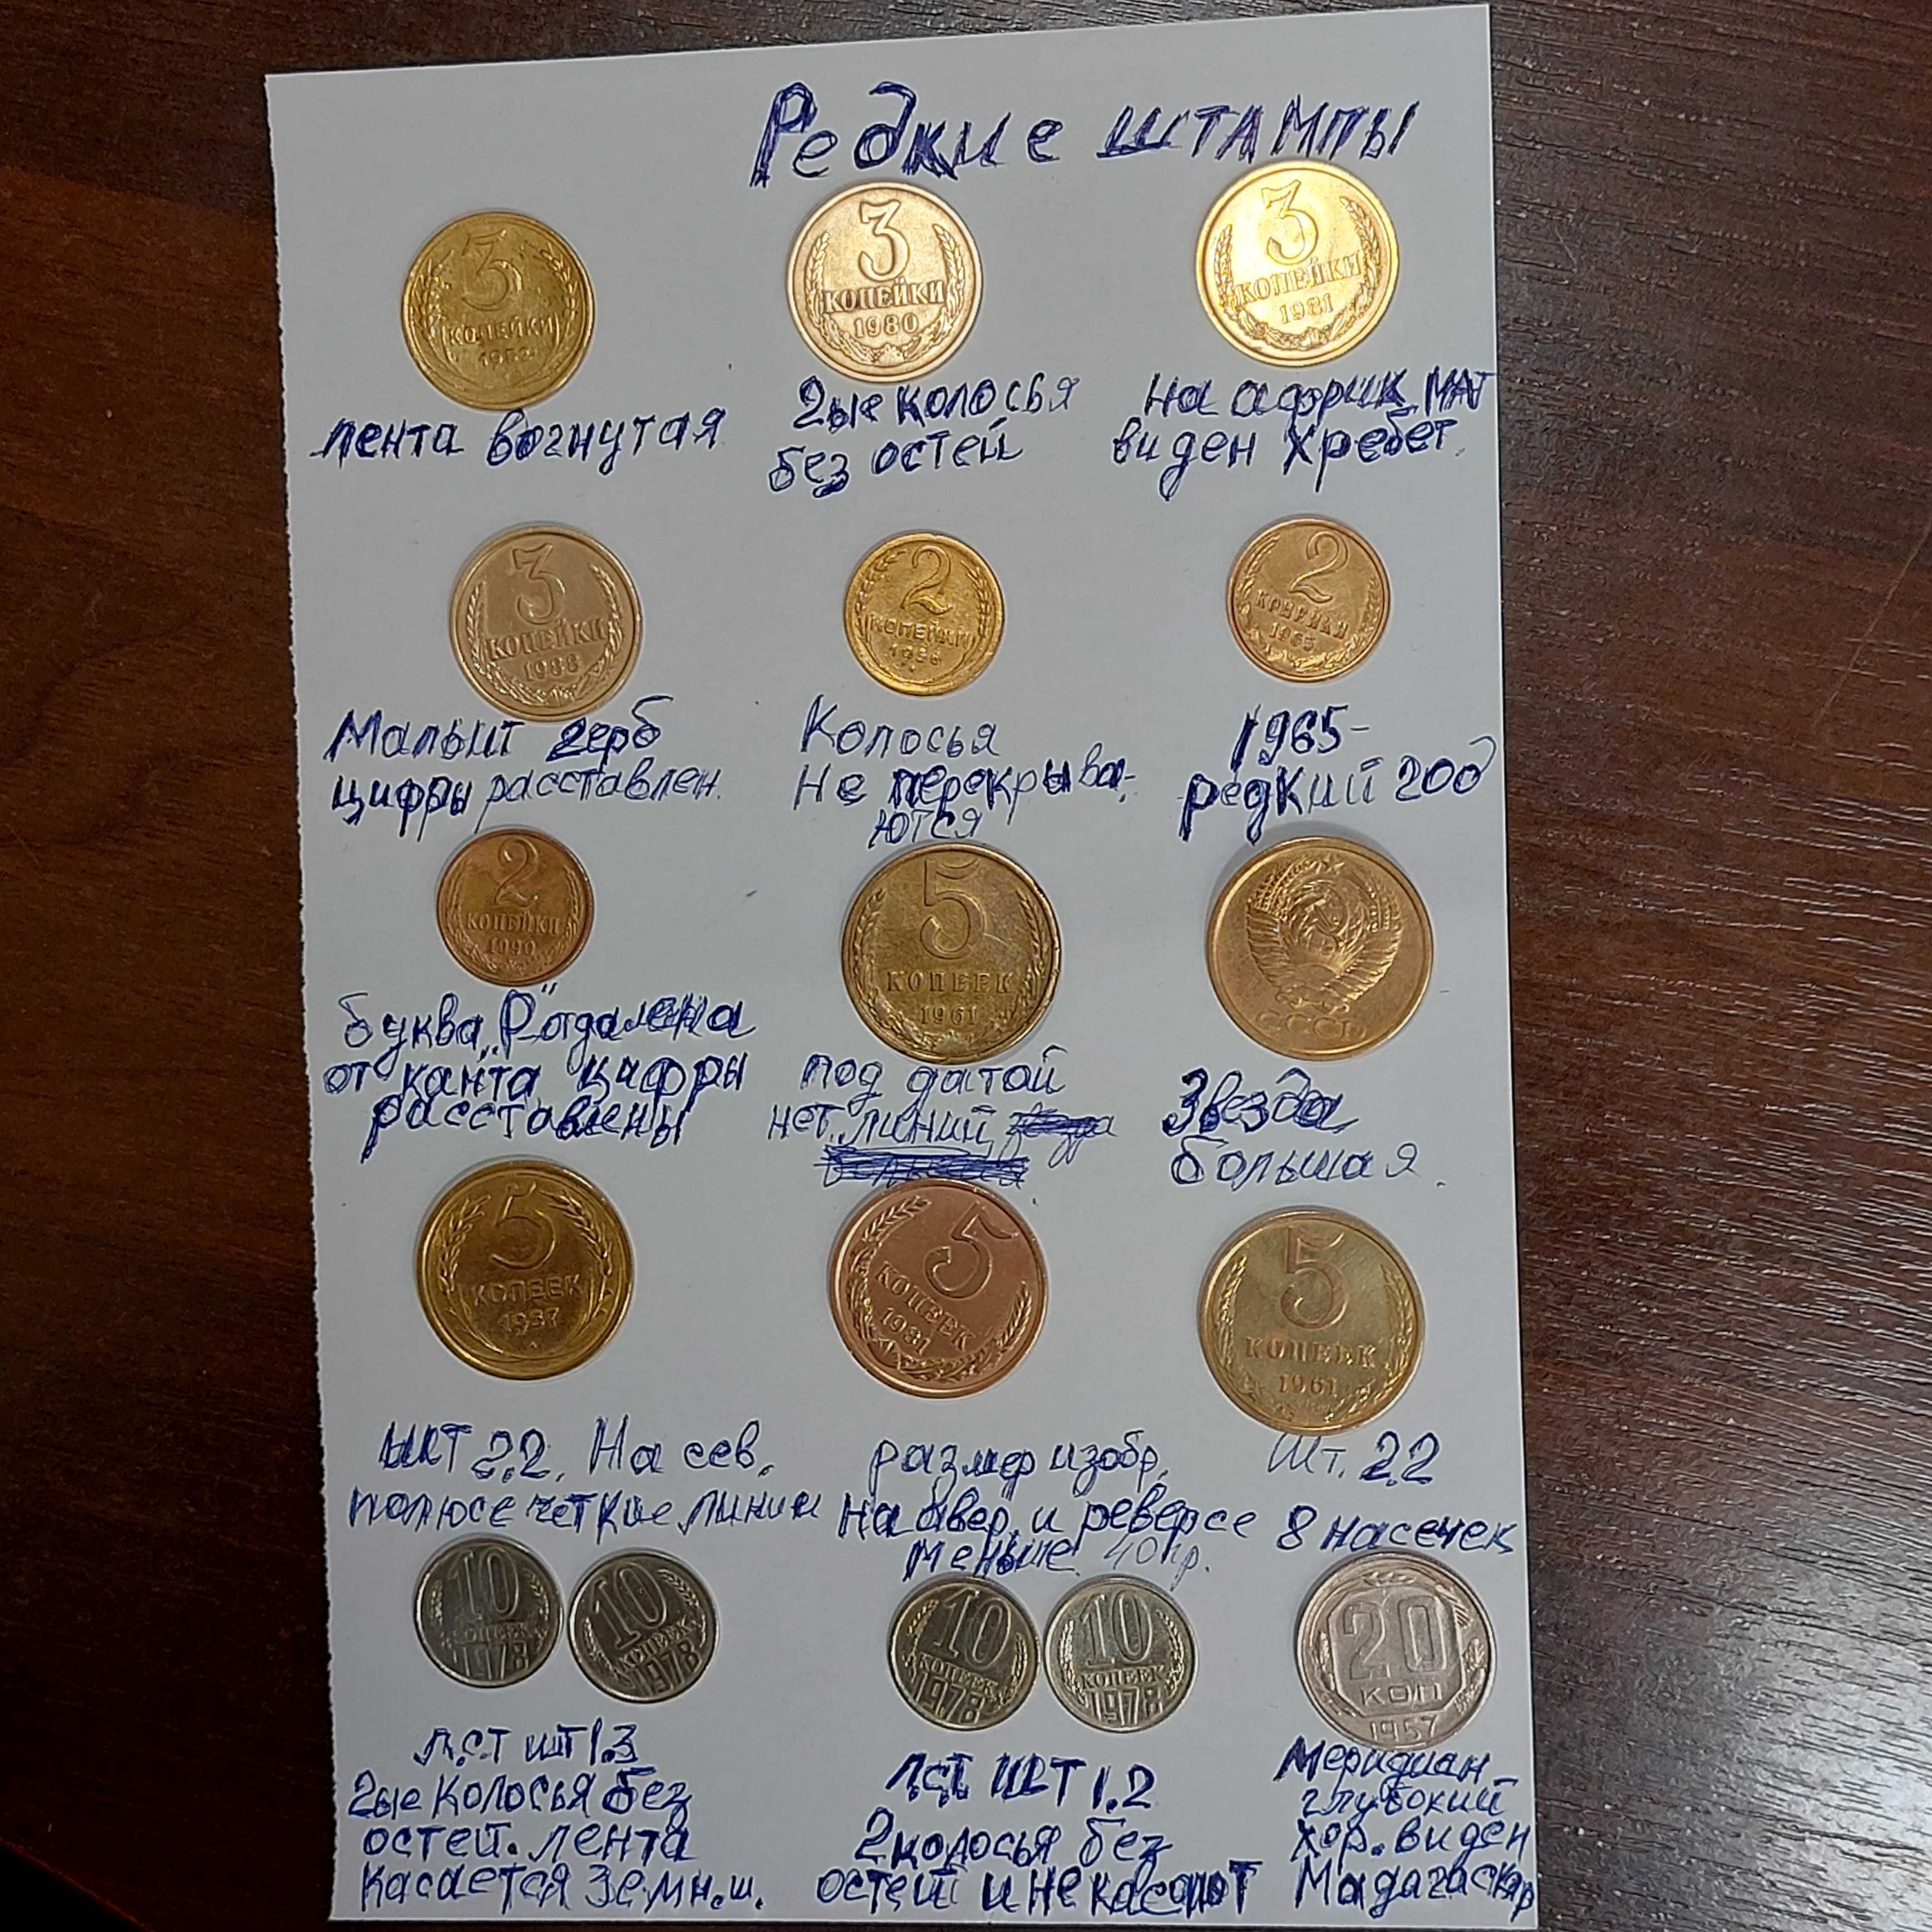 Редкие штампы
3
КОПЕЙКИ
3
КОПЕЙКИ
1980
3
КОПЕЙКИ
1981
лента вогнутая
2ые колосья
без остей
на африк. мат
виден хребет.
3
КОПЕЙКИ
1988
2
КОПЕЙКИ
2
КОПЕЙКИ
1965
Малыит герб
цифры расставлен.
Колосья
Не перекрыва-
ются
1965-
редкий год
2
КОПЕЙКИ
1990
5
КОПЕЕК
1961
СССР
буква „Р" отдалена
от канта, цифры
расставлены
под датой
нет линий
Звезда
большая.
5
КОПЕЕК
1937
5
КОПЕЕК
1981
5
КОПЕЕК
1961
шт 2.2. На сев.
полюсе четкие линии
размер изобр.
на авер. и реверсе
меньше 40пр.
Шт. 2.2
8 насечек
10
КОПЕЕК
1978
10
КОПЕЕК
1978
10
КОПЕЕК
1978
10
КОПЕЕК
1978
20
КОП
1957
л.ст шт 1.3
2ые колосья без
остей. лента
касается земн.ш.
л.ст шт 1.2
2 колосья без
остей и не касают
Меридиан
глубокий
хор. виден
Мадагаскар